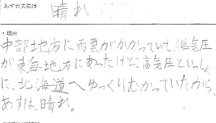 あすの天気は 晴れ
・理由
中部地方に雨雲がかかっていて、低気圧
が東海地方にあったけど、高気圧といっしょ
に、北海道へゆっくりむかっていたから、
あすは、晴れ。